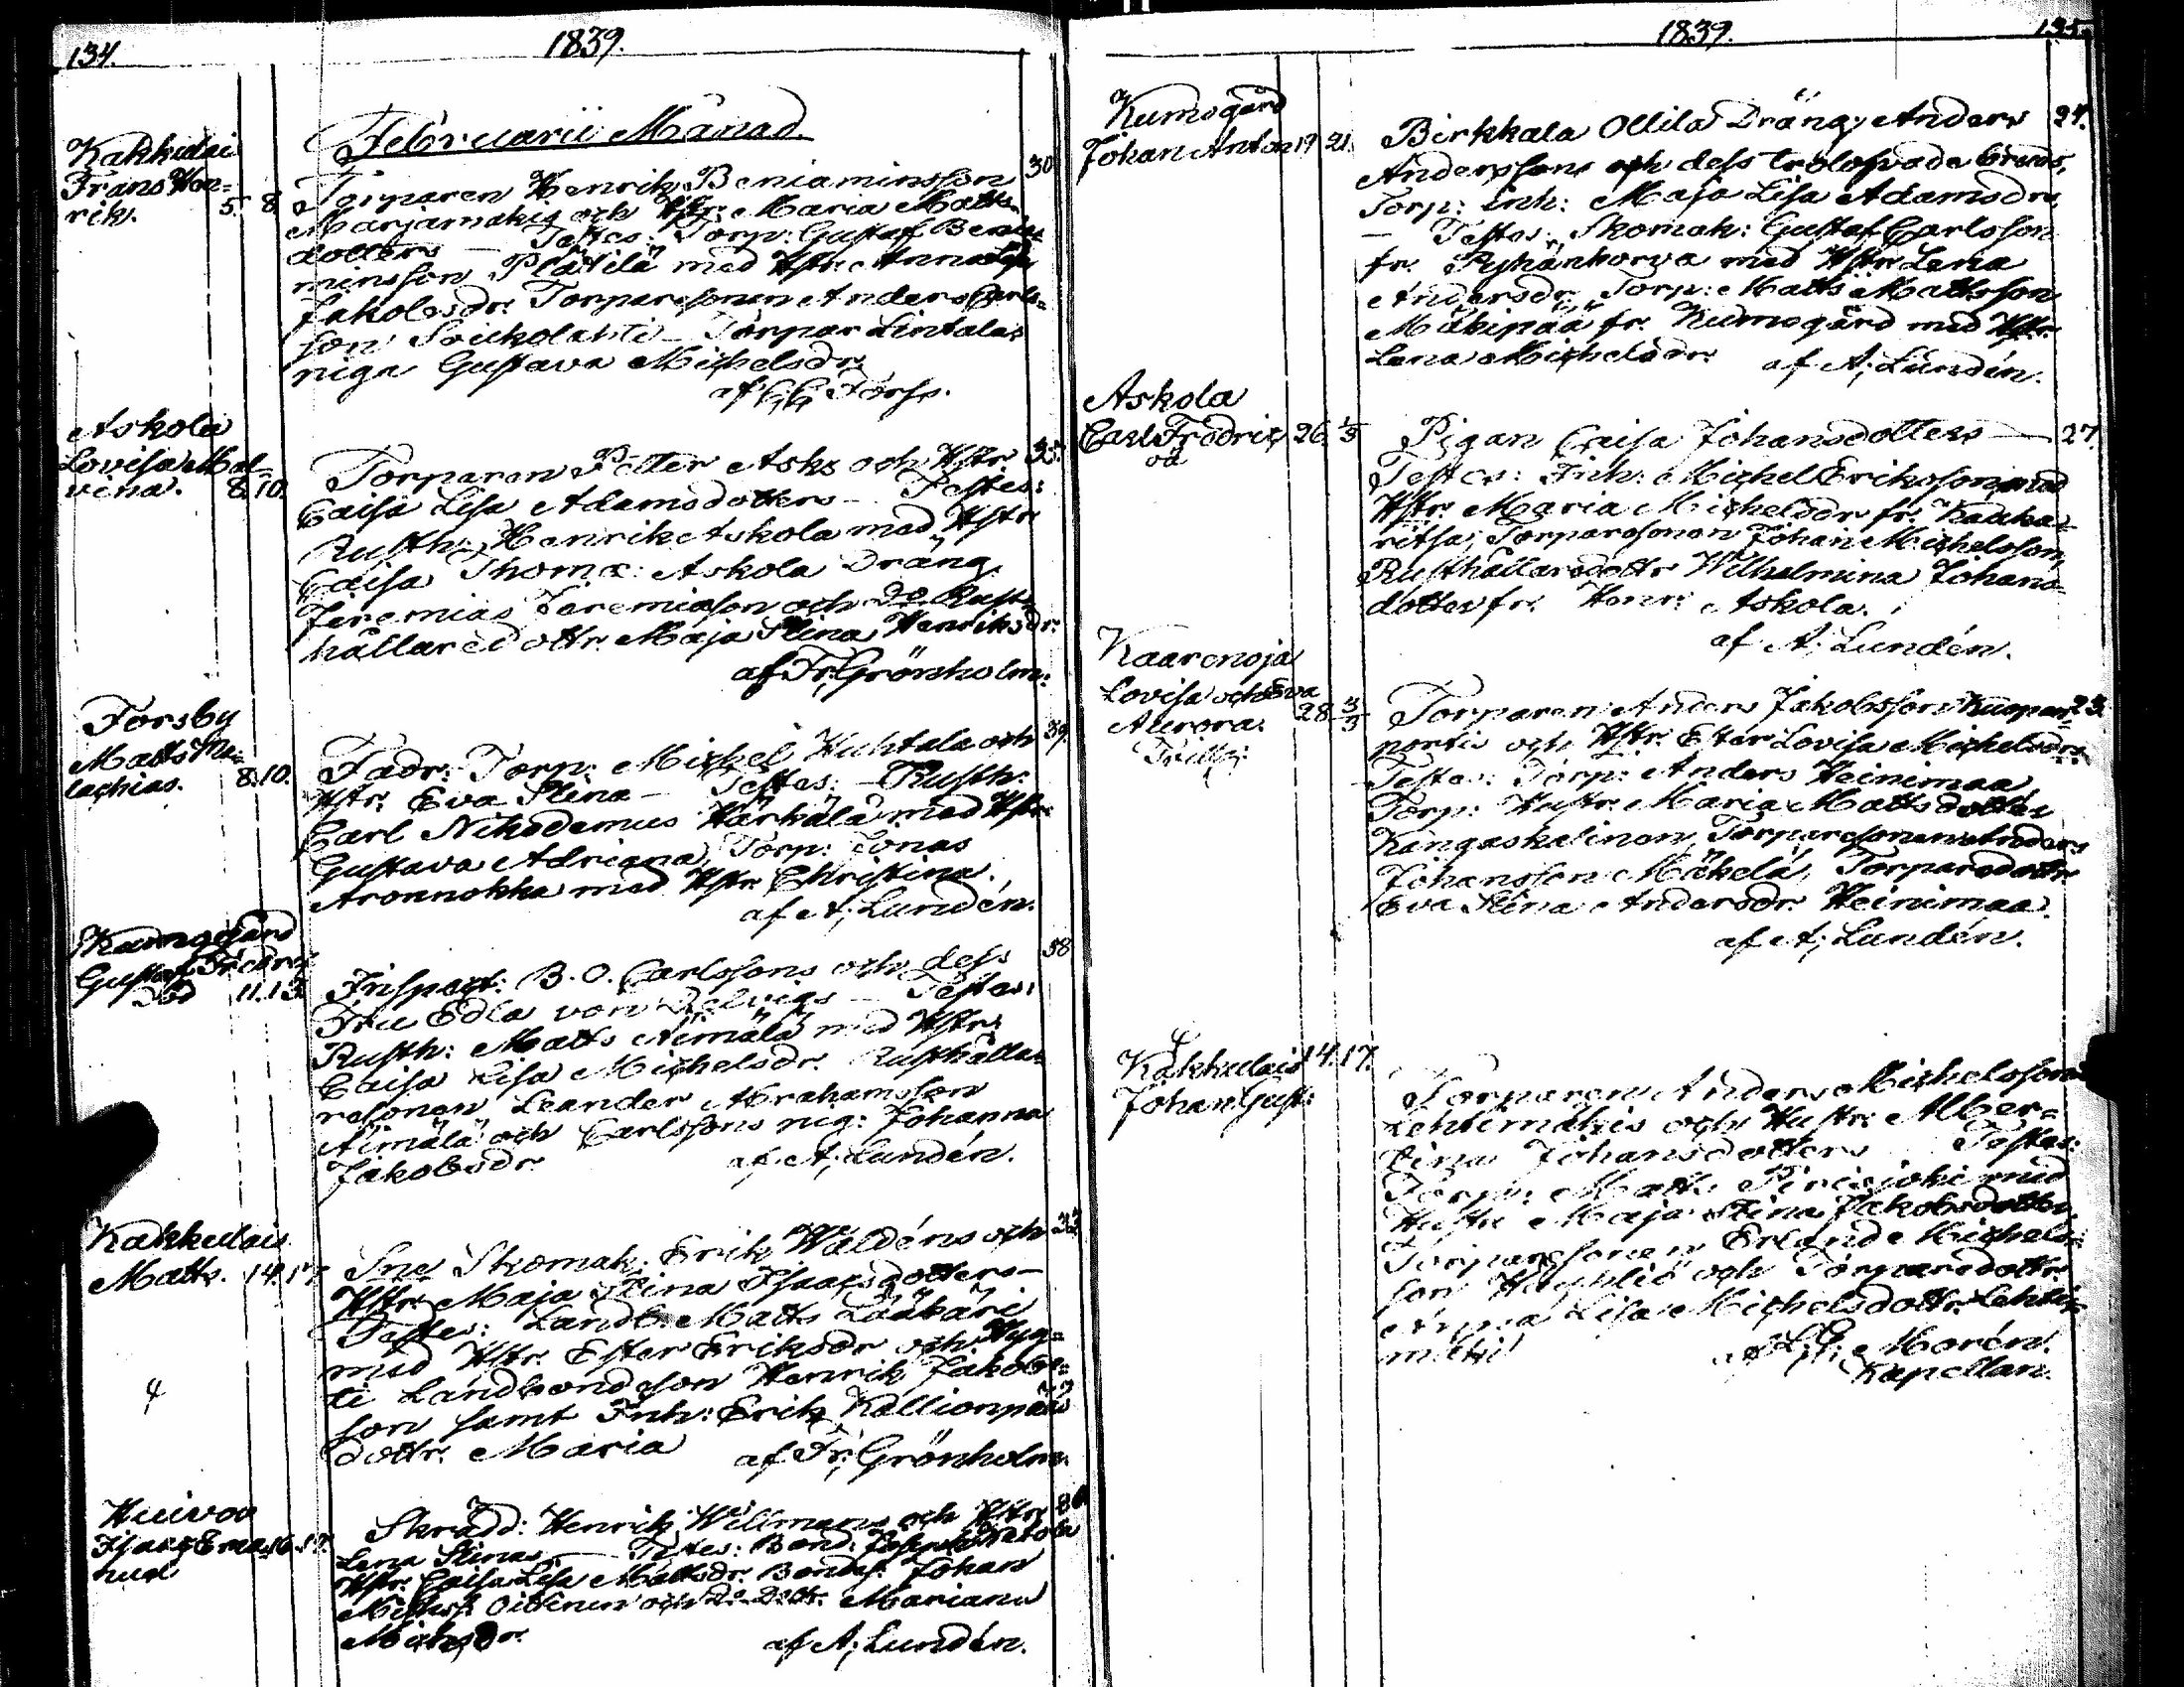 134.
1839.
Februarii Månad.
Kakkulai
Frans Hen=
rik. 5. 8
Torparen Henrik Beniaminsson 30
Marjamäkis och Hstr. Maria Matts
dotters — Testes: Torp: Gustaf Benia
minsson Plättilä med Hstr. Anna Lisa
Jakobsdr. Torparesonen Anders Carls=
son Souckolahti — Torpar Lintalas
piga Gustava Michelsdr.
af Forss.
Askola
Lovisa Mal=
vina. 8. 10.
Torparen Petter Asks och Hstr
Caisa Lisa Adamsdotters — Testes:
Rusth: Henrik Askola med Hstr
Caisa Thomæ: Askola Dräng
Jeremias Jeremiasson och do Rust=
hållaredottr. Maja Stina Henriksdr.
af Fr. Grönholm.
Forsby
Matts Ma=
lachias. 8. 10.
Fadr: Torp: Michel Huhtala och 39.
Hstr. Eva Stina — Testes: — Rusth:
Carl Nikodemus Härkälä med Hstr.
Gustava Adriana, Torp: Jonas
Aronnokka med Hstr. Christina.
af A; Lundén.
Gustaf Fredric
död 11. 13.
Inspect: B. O. Carlssons och dess 38
Fru Edla von Testes:
Rusth: Matts Äimälä med Hstr.
Caisa Lisa Michelsdr. Rusthålla=
resonen Leander Abrahamsson
Äimälä och Carlssons pig: Johanna
Jakobsdr. af A; Lundén.
Kakkulais
Matts. 14. 17.
Sne Skomak. Erik Waldéns och
Hstr. Maja Stina Isaacsdotters —
Testes: Landb. Matts Lääkäri
med Hstr. Ester Eriksdr och Hyg=
ti Landbondeson Henrik Jakobs=
son samt Inh: Erik Kallionpää
dottr. Maria af Fr. Grönholm.
Huivoo
Isaac Ema 16. 17.
nuel
Skrädd: Henrik Willmans och Hstr
Lena Stinas — Testes: Bond: Josef
Hstr. Caisa Lisa Mattsdr. Bondes: Johan
Oittinen och Do Dottr. Mariana
Michsdr. af A; Lundén.
1839.
135.
Kumogård
Johan Anton 19 21.
Birkkala Ollila Dräng Anders 24.
Anderssons och dess trolofvade Bruds,
Torp: inh: Maja Lisa Adamsdrs
— Testes: Skomak: Gustaf Carlsson
fr. Pyhänkorva med Hstr. Lena
Andersdr. Torp: Matts Mattsson
Mäkipää fr. Kumogård med Hstr.
Lena Michelsdr. af A; Lundén.
Askola
Carl Fredric 26. 1/3
oä
Pigan Caisa Johansdotters — 27
Testes: Inh: Michel Eriksson med
Hstr. Maria Michelsdr fr. Kaaka=
ritsa, Torparesonen Johan Michelsson,
Rusthållaredottr Wilhelmina Johans
dotter fr. Henr: Askola.
af A; Lundén.
Kaarenoja
Lovisa och Eva
Aurora. 28 3/3
Tvill:
Torparen Anders Jakobsson Kuopan= 23.
portis och Hstr. Ester Lovisa Michelsdrs
Testes: Torp: Anders Heinimaa,
Torp: Hustr. Maria Mattsdotter
Kangaskalinen, Torparesonen Anders
Johansson Mäkelä, Torparedottr
Eva Stina Andersdr. Heinimaa.
af A; Lundén.
Kakkulais 14. 17.
Johan Gust:
Torparen Anders Michelssons
Lehtimäkis och Hustr. Alber=
tina Johansdotters Testes:
Torp: Matts Pirisjoki med
Hustr Maja Stina Jakobsdotter,
Torparesonen Erland Michels=
son och Torparedottr.
Anna Lisa Michelsdottr. Lehti=
mäki
Morén.
Kapellan.